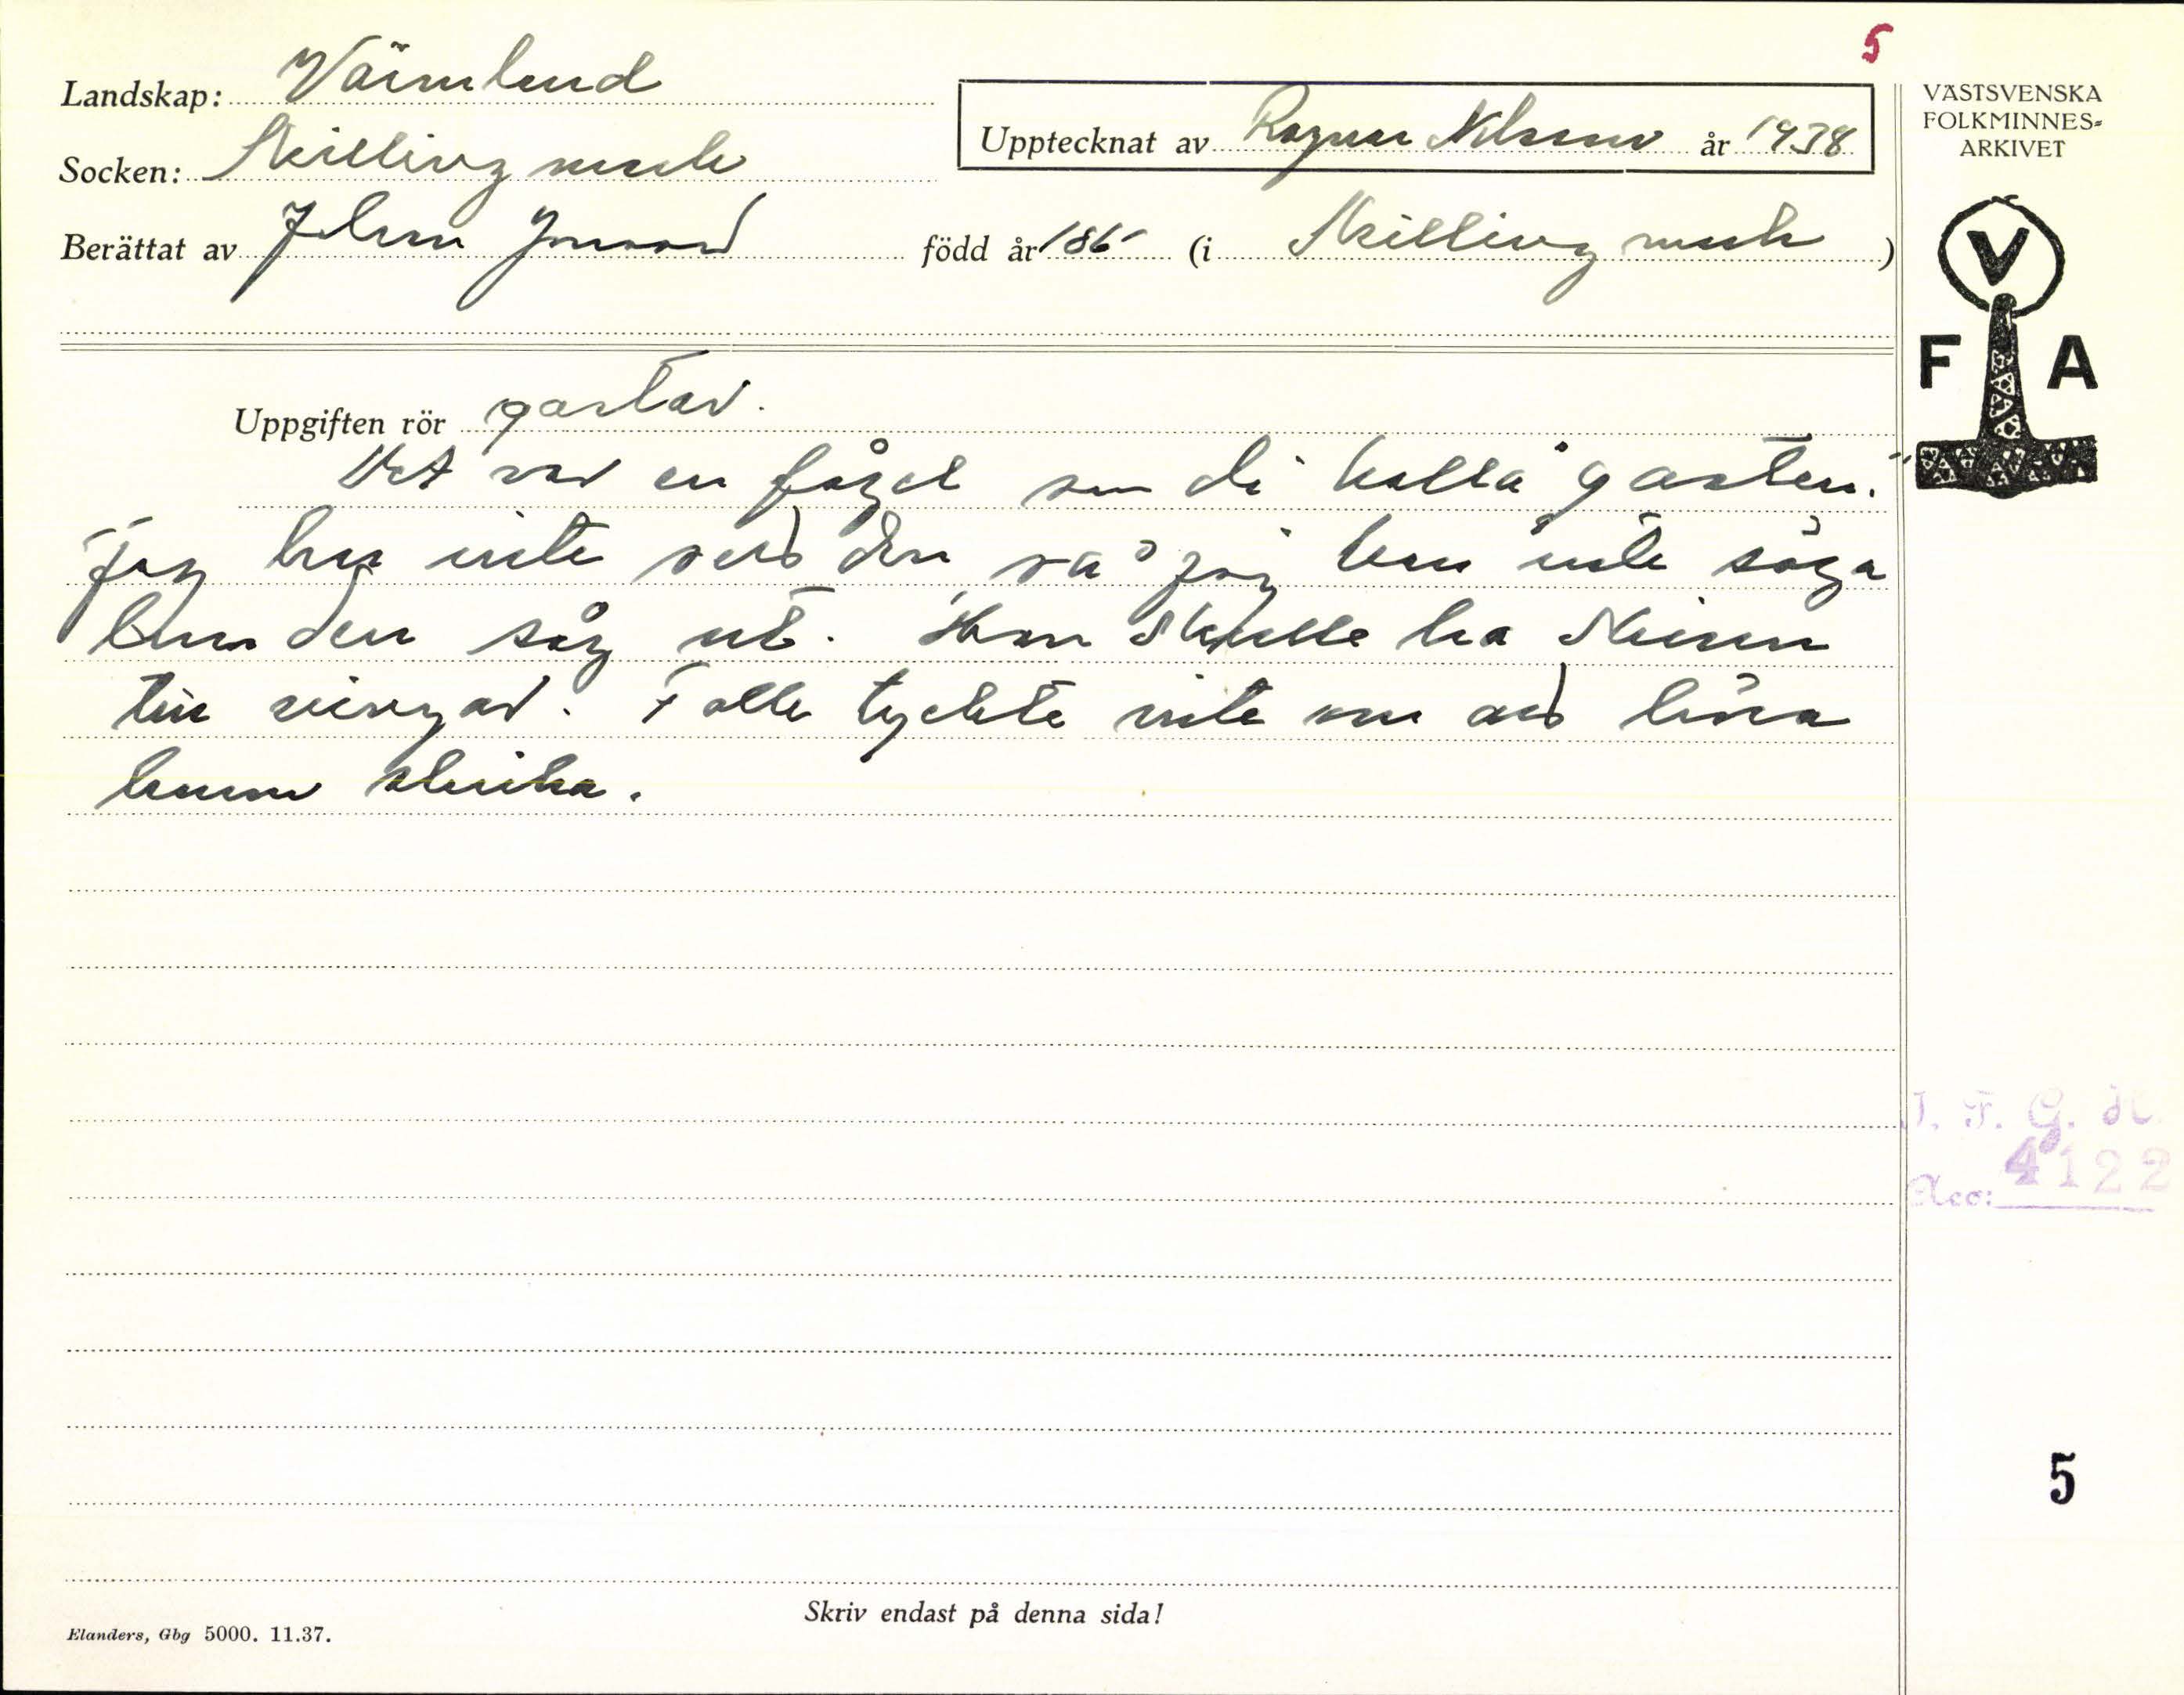 5
Landskap: Värmland
Socken: Skillingmark
Upptecknat av Ragnar Nilsson år 1938
Berättat av Johan Jonsson född år 186 (i Skillingmark)
VÄSTSVENSKA
FOLKMINNES=
ARKIVET
V
F A
Uppgiften rör gastar.
Det var en fågel som di kalla "gasten."
Jag har inte sett den, så jag kan inte säga
hur den såg ut. Han skulle ha skinn
till vingar. Folk tyckte inte om att höra
honom skrika.
I. F. G. H.
Acc: 4122
5
Skriv endast på denna sida!
Elanders, Gbg 5000. 11.37.